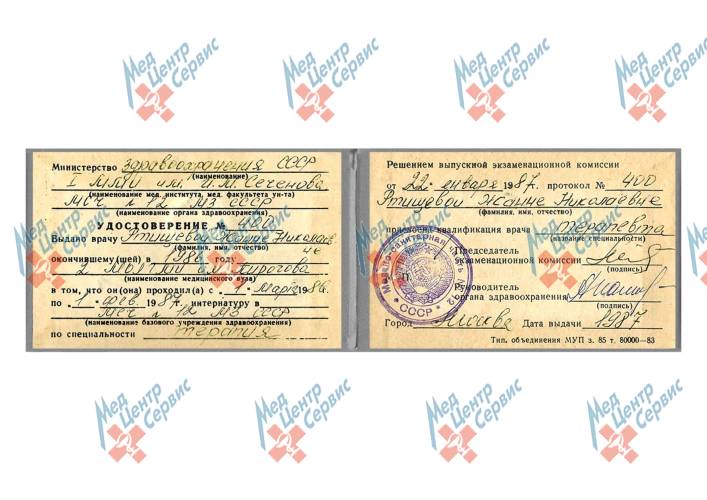 Мед Центр Сервис
Мед Центр Сервис
Мед Центр Сервис
Мед Центр Сервис
Министерство здравоохранения СССР
(наименование)
I ММИ им. И.М. Сеченова
(наименование мед. института, мед. факультета ун-та)
МСЧ № 12 МЗ СССР
(наименование органа здравоохранения)
УДОСТОВЕРЕНИЕ № 400
Выдано врачу Ртищевой Жанне Николаевне
(фамилия, имя, отчество)
окончившему(шей) в 198 году
2 им. Пирогова
(наименование медицинского вуза)
в том, что он(она) проходил(а) с 1 1986
по 1 фев. 1987 интернатуру в
МСЧ № 12 МЗ СССР
(наименование базового учреждения здравоохранения)
по специальности терапия
Решением выпускной экзаменационной комиссии
от 22 января 1987 г. протокол № 400
Ртищевой Жанне Николаевне
(фамилия, имя, отчество)
присвоена квалификация врача терапевта
(название специальности)
Председатель
экзаменационной комиссии
(подпись)
Руководитель
органа здравоохранения
(подпись)
Город Москва Дата выдачи 1987
Тип. объединения МУП з. 85 т. 80000—83
СССР
Мед Центр Сервис
Мед Центр Сервис
Мед Центр Сервис
Мед Центр Сервис